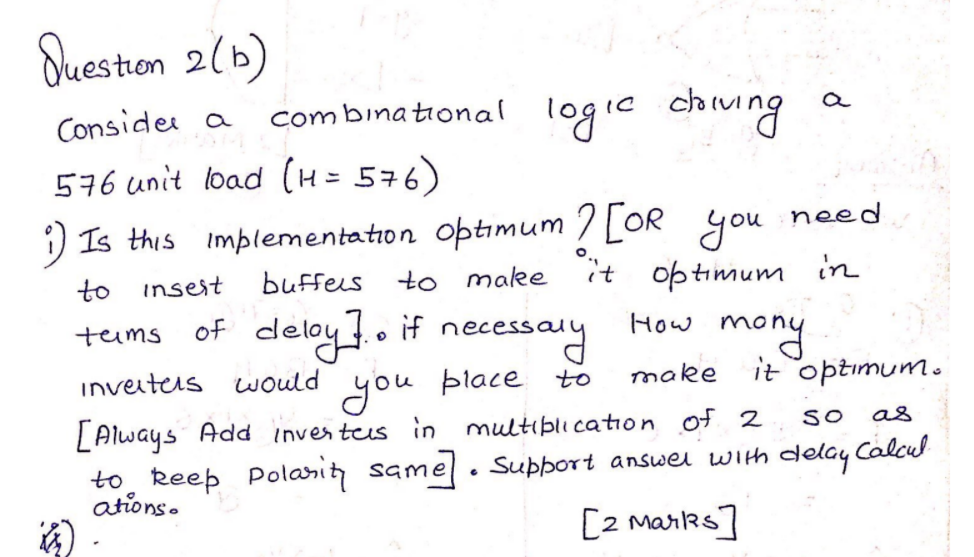 Question 2(b)
Consider a combinational logic driving a
576 unit load (H = 576)
i) Is this implementation optimum ? [OR you need
to insert buffers to make it optimum in
terms of delay]. if necessary How many
inverters would you place to make it optimum.
[Always Add inverters in multiplication of 2 so as
to keep polarity same]. Support answer with delay Calcul
ations.
[2 Marks]